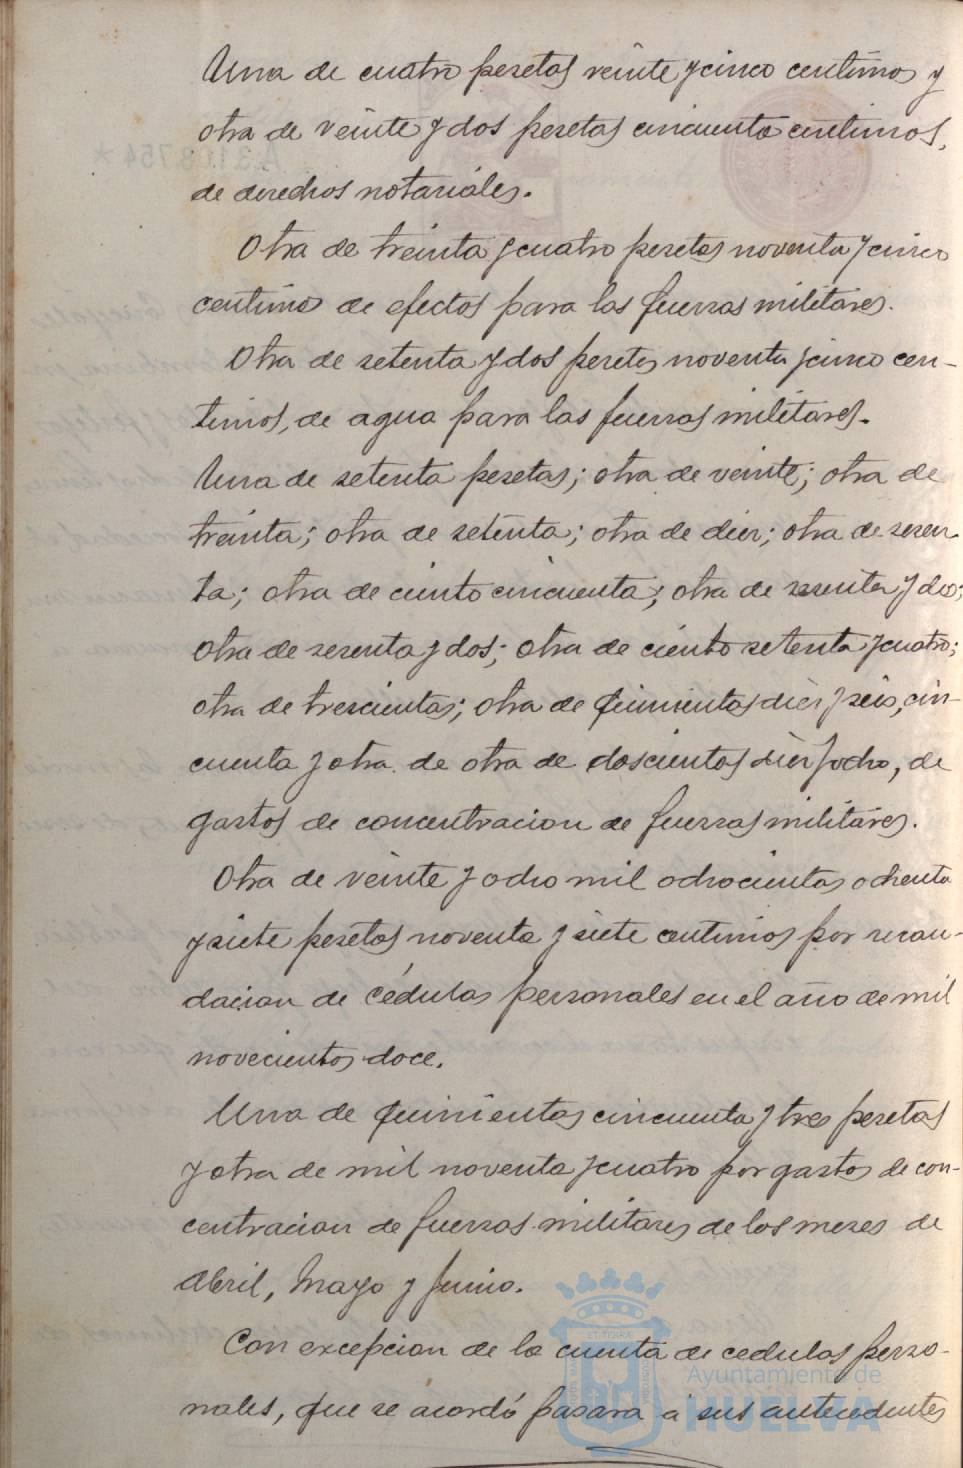 Una de cuatro pesetas veinte y cinco centimos y
otra de veinte y dos pesetas cincuenta centimos,
de derechos notariales.
Otra de treinta y cuatro pesetas noventa y cinco
centimos de efectos para las fuerzas militares.
Otra de setenta y dos pesetas noventa y cinco cen-
timos, de agua para las fuerzas militares.
Una de setenta pesetas; otra de veinte; otra de
treinta; otra de setenta; otra de diez; otra de sesen-
ta; otra de ciento cincuenta; otra de sesenta y dos;
otra de sesenta y dos; otra de ciento setenta y cuatro;
otra de trescientas; otra de quinientas diez y seis, cin-
cuenta y otra de otra de doscientas diez y ocho, de
gastos de concentracion de fuerzas militares.
Otra de veinte y ocho mil ochocientas ochenta
y siete pesetas noventa y siete centimos por recau-
dacion de cédulas personales en el año de mil
novecientos doce.
Una de quinientas cincuenta y tres pesetas
y otra de mil noventa y cuatro por gastos de con-
centracion de fuerzas militares de los meses de
Abril, Mayo y Junio.
Con excepcion de la cuenta de cedulas perso-
nales, que se acordó pasara a sus antecedentes
Ayuntamiento de
HUELVA